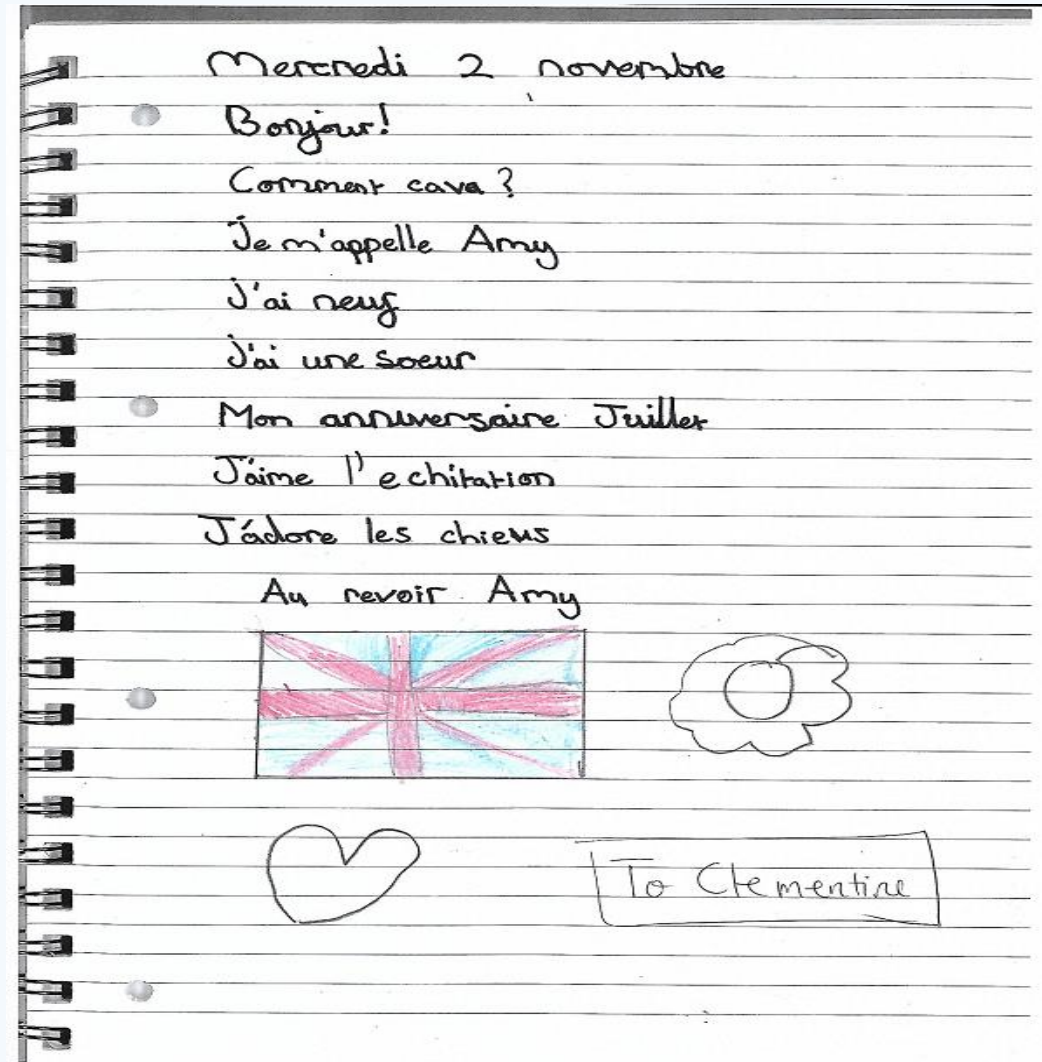 Mercredi 2 novembre
Bonjour!
Comment cava?
Je m'appelle Amy
J'ai neuf
J'ai une soeur
Mon anniversaire Juillet
J'aime l'echitation
J'adore les chiens
Au revoir Amy
To Clementine